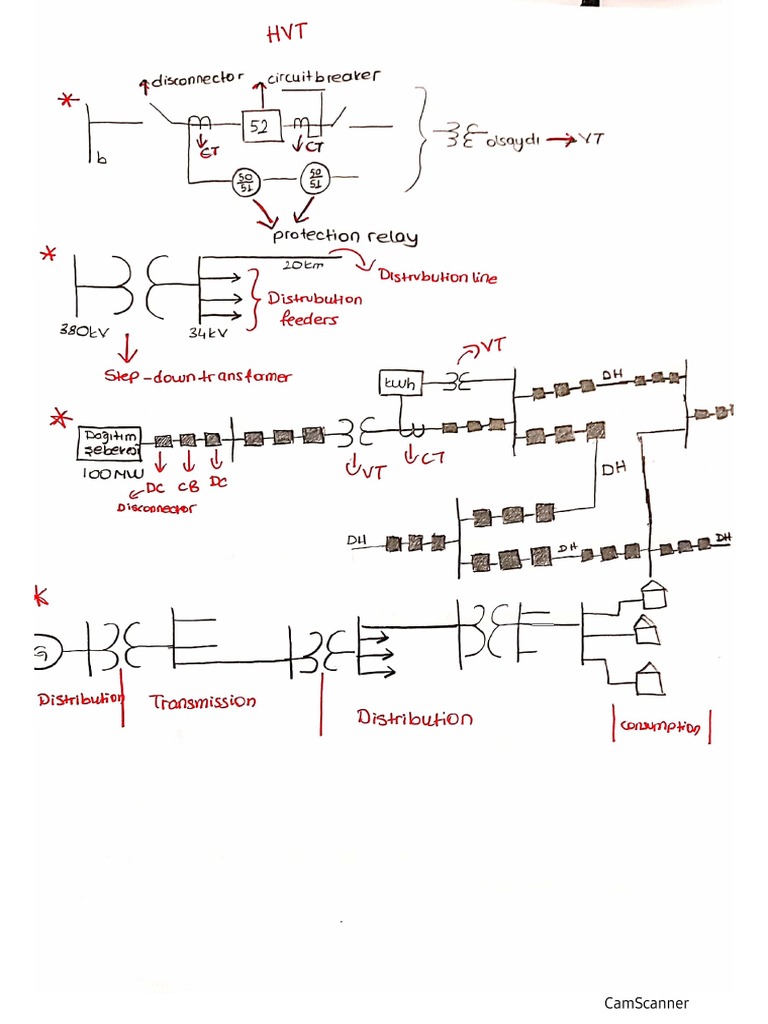 HVT
disconnector
circuitbreaker
b
CT
52
CT
olsaydı → VT
50
51
50
51
protection relay
20km
Distrubution line
Distrubution
feeders
380kV
34kV
Step-down transfomer
VT
kwh
DH
Dağıtım
şebekesi
100MW
DC
CB
DC
Disconnector
VT
CT
DH
DH
DH
DH
G
Distribution
Transmission
Distribution
consumption
CamScanner